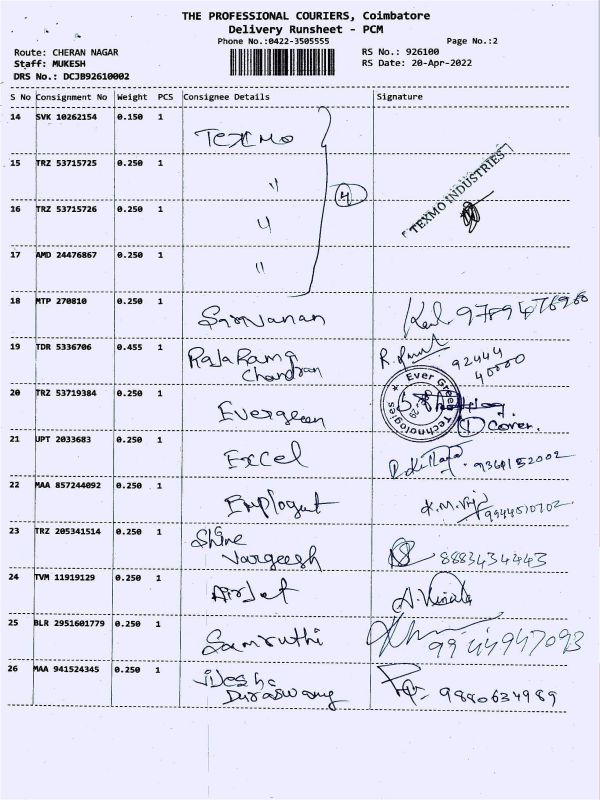 THE PROFESSIONAL COURIERS, Coimbatore
Delivery Runsheet - PCM
Phone No.:0422-3505555 Page No.:2
Route: CHERAN NAGAR RS No.: 926100
Staff: MUKESH RS Date: 20-Apr-2022
DRS No.: DCJB92610002
S No Consignment No Weight PCS Consignee Details Signature
14 SVK 10262154 0.150 1 TEXMO
15 TRZ 53715725 0.250 1 "
4
TEXMO INDUSTRIES
16 TRZ 53715726 0.250 1 "
17 AMD 24476867 0.250 1 "
18 MTP 270810 0.250 1 Sarvanan
19 TDR 5336706 0.455 1 RajaRam
Chandran 92444
40000
20 TRZ 53719384 0.250 1 Evergreen
Ever Green Technologies
1 Cover.
21 UPT 2033683 0.250 1 Excel 9361152002
22 MAA 857244092 0.250 1 K.M. 9944510702
23 TRZ 205341514 0.250 1 Shine
Vargeesh 8883434443
24 TVM 11919129 0.250 1 AirJet
25 BLR 2951601779 0.250 1 Samruthi 9944947093
26 MAA 941524345 0.250 1 9880634989